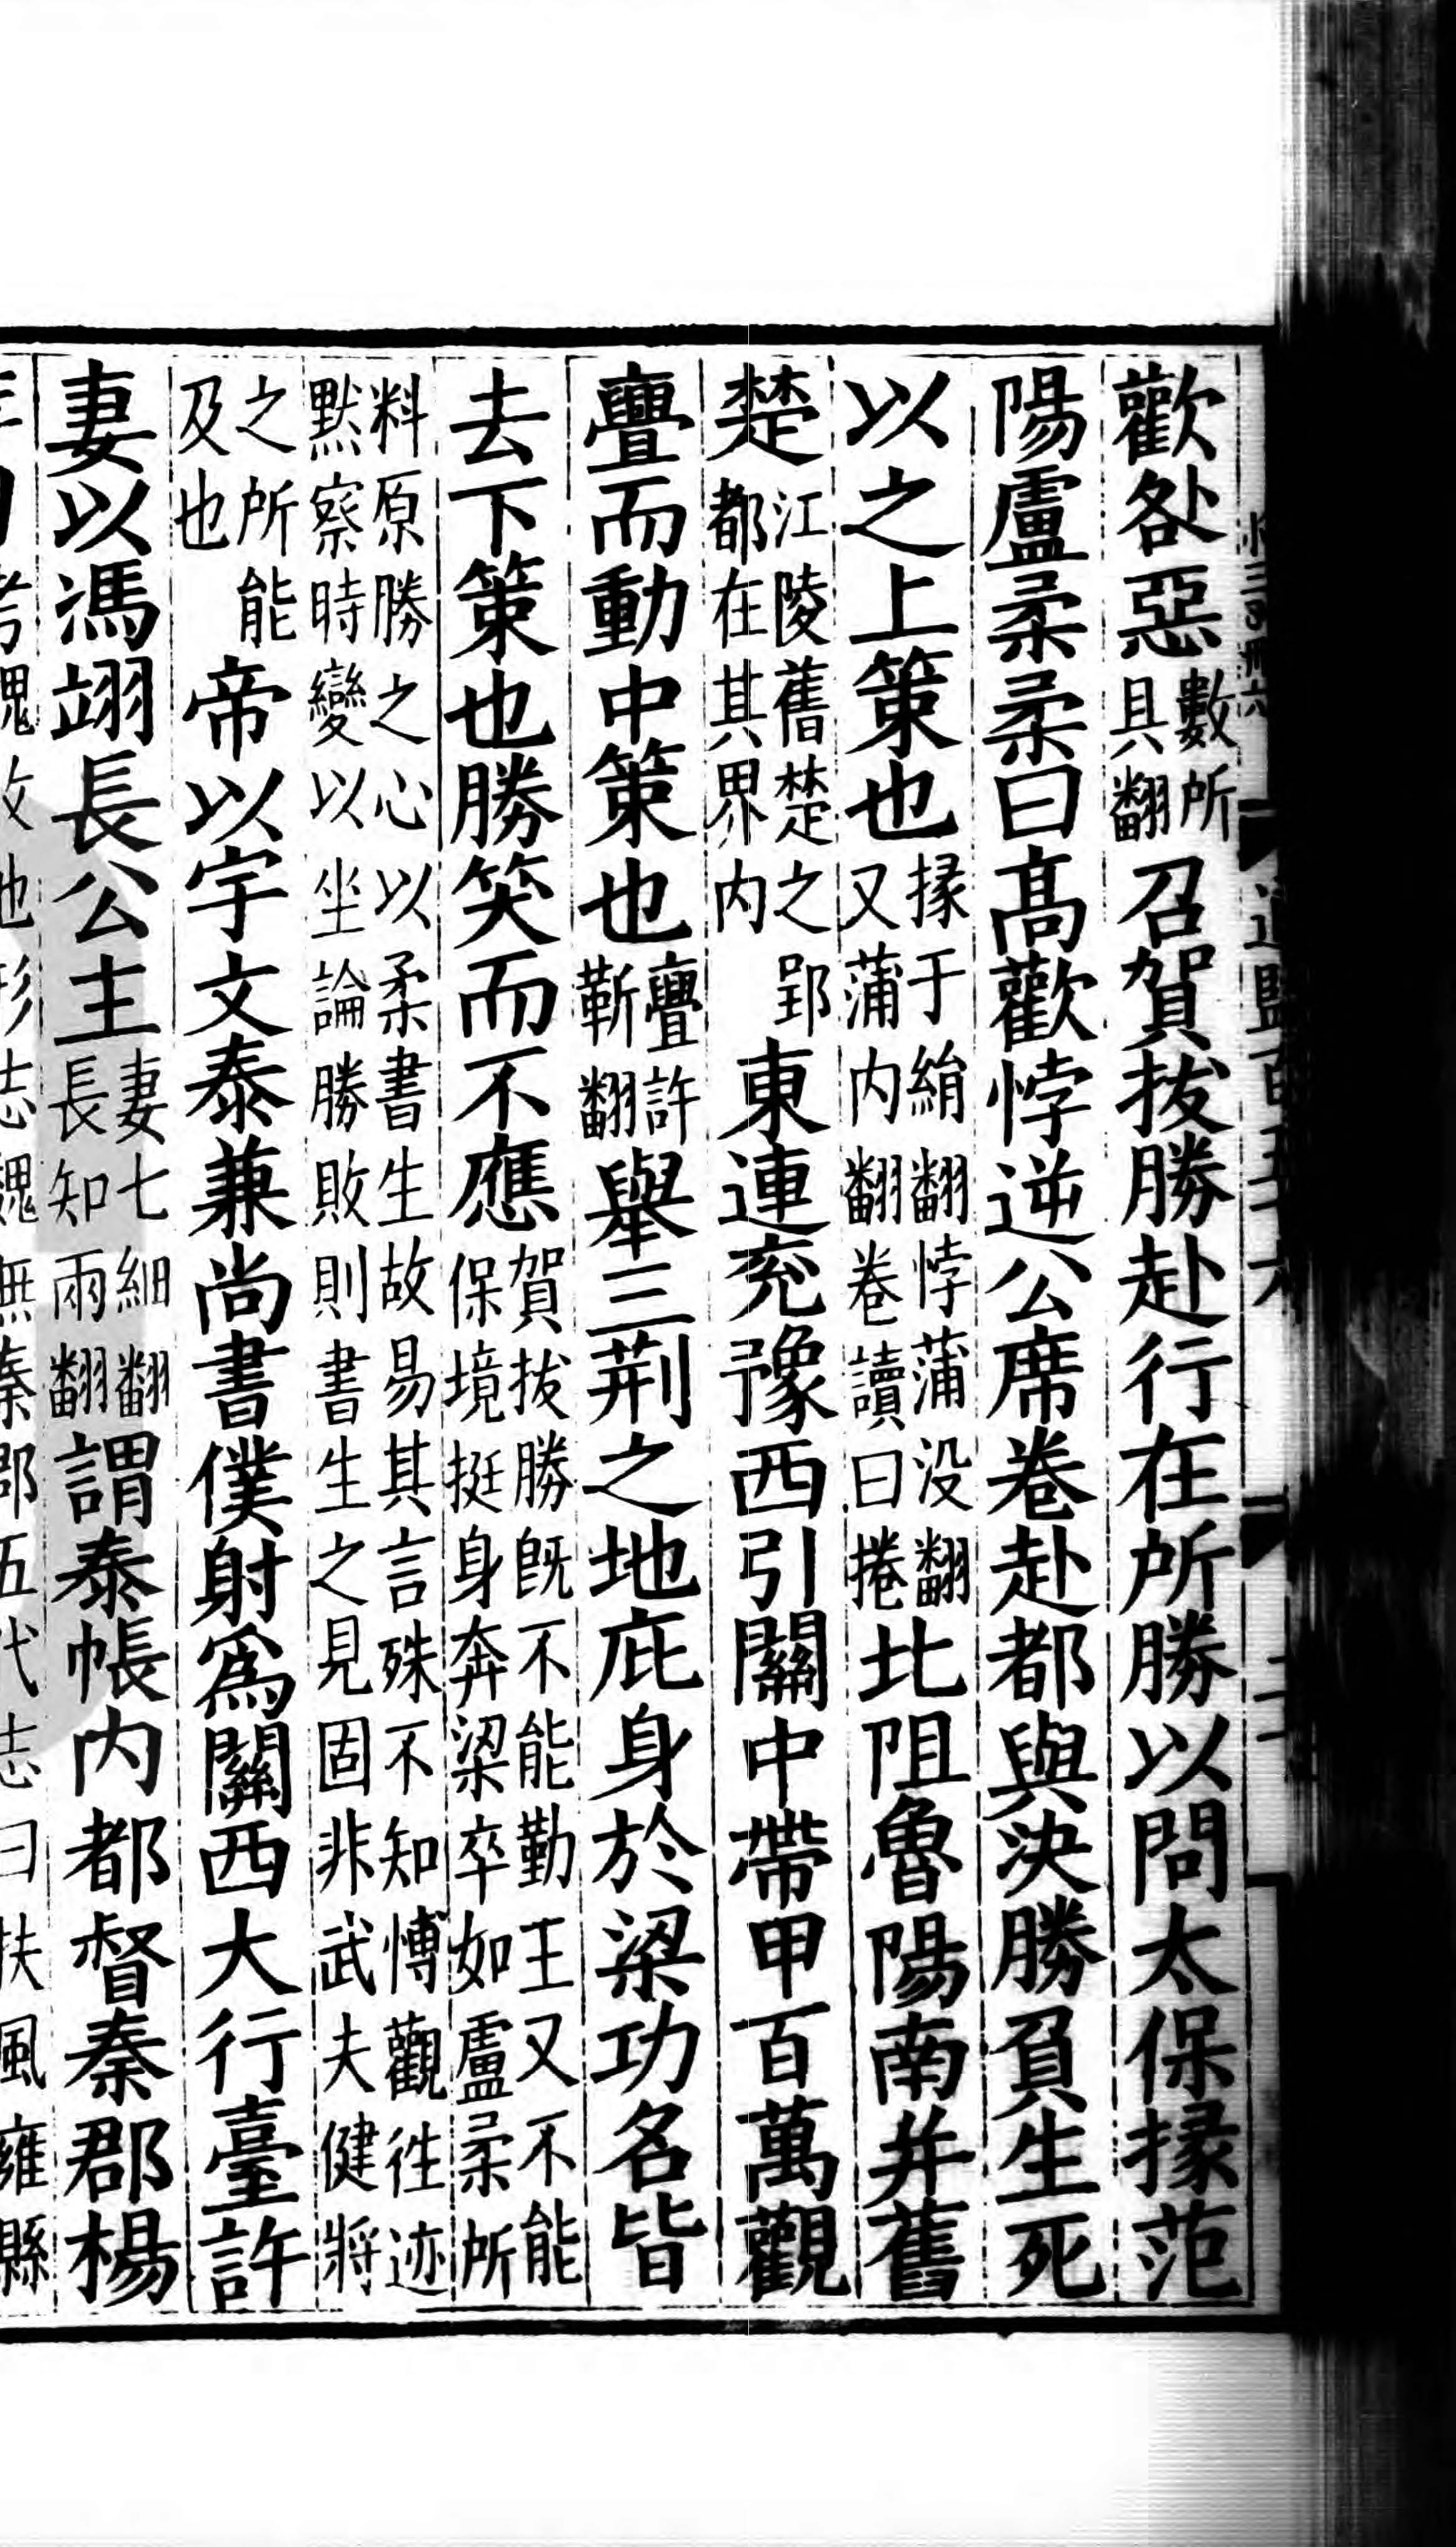 歡咎惡數所具翻召賀拔勝赴行在所勝以問太保掾范
陽盧柔柔曰高歡悖逆公席卷赴都與決勝負生死
以之上策也掾于絹翻悖蒲没翻又蒲内翻卷讀曰捲北阻魯陽南并舊
楚江陵舊楚之郢都在其界内東連兖豫西引關中帶甲百萬觀
舋而動中策也舋許靳翻舉三荆之地庇身於梁功名皆
去下策也勝笑而不應賀拔勝既不能勤王又不能保境挺身奔梁卒如盧柔所
料原勝之心以柔書生故易其言殊不知博觀往迹默察時變以坐論勝敗則書生之見固非武夫健將
之所能及也帝以宇文泰兼尚書僕射爲關西大行臺許
妻以馮翊長公主妻七細翻長知兩翻謂泰帳内都督秦郡楊